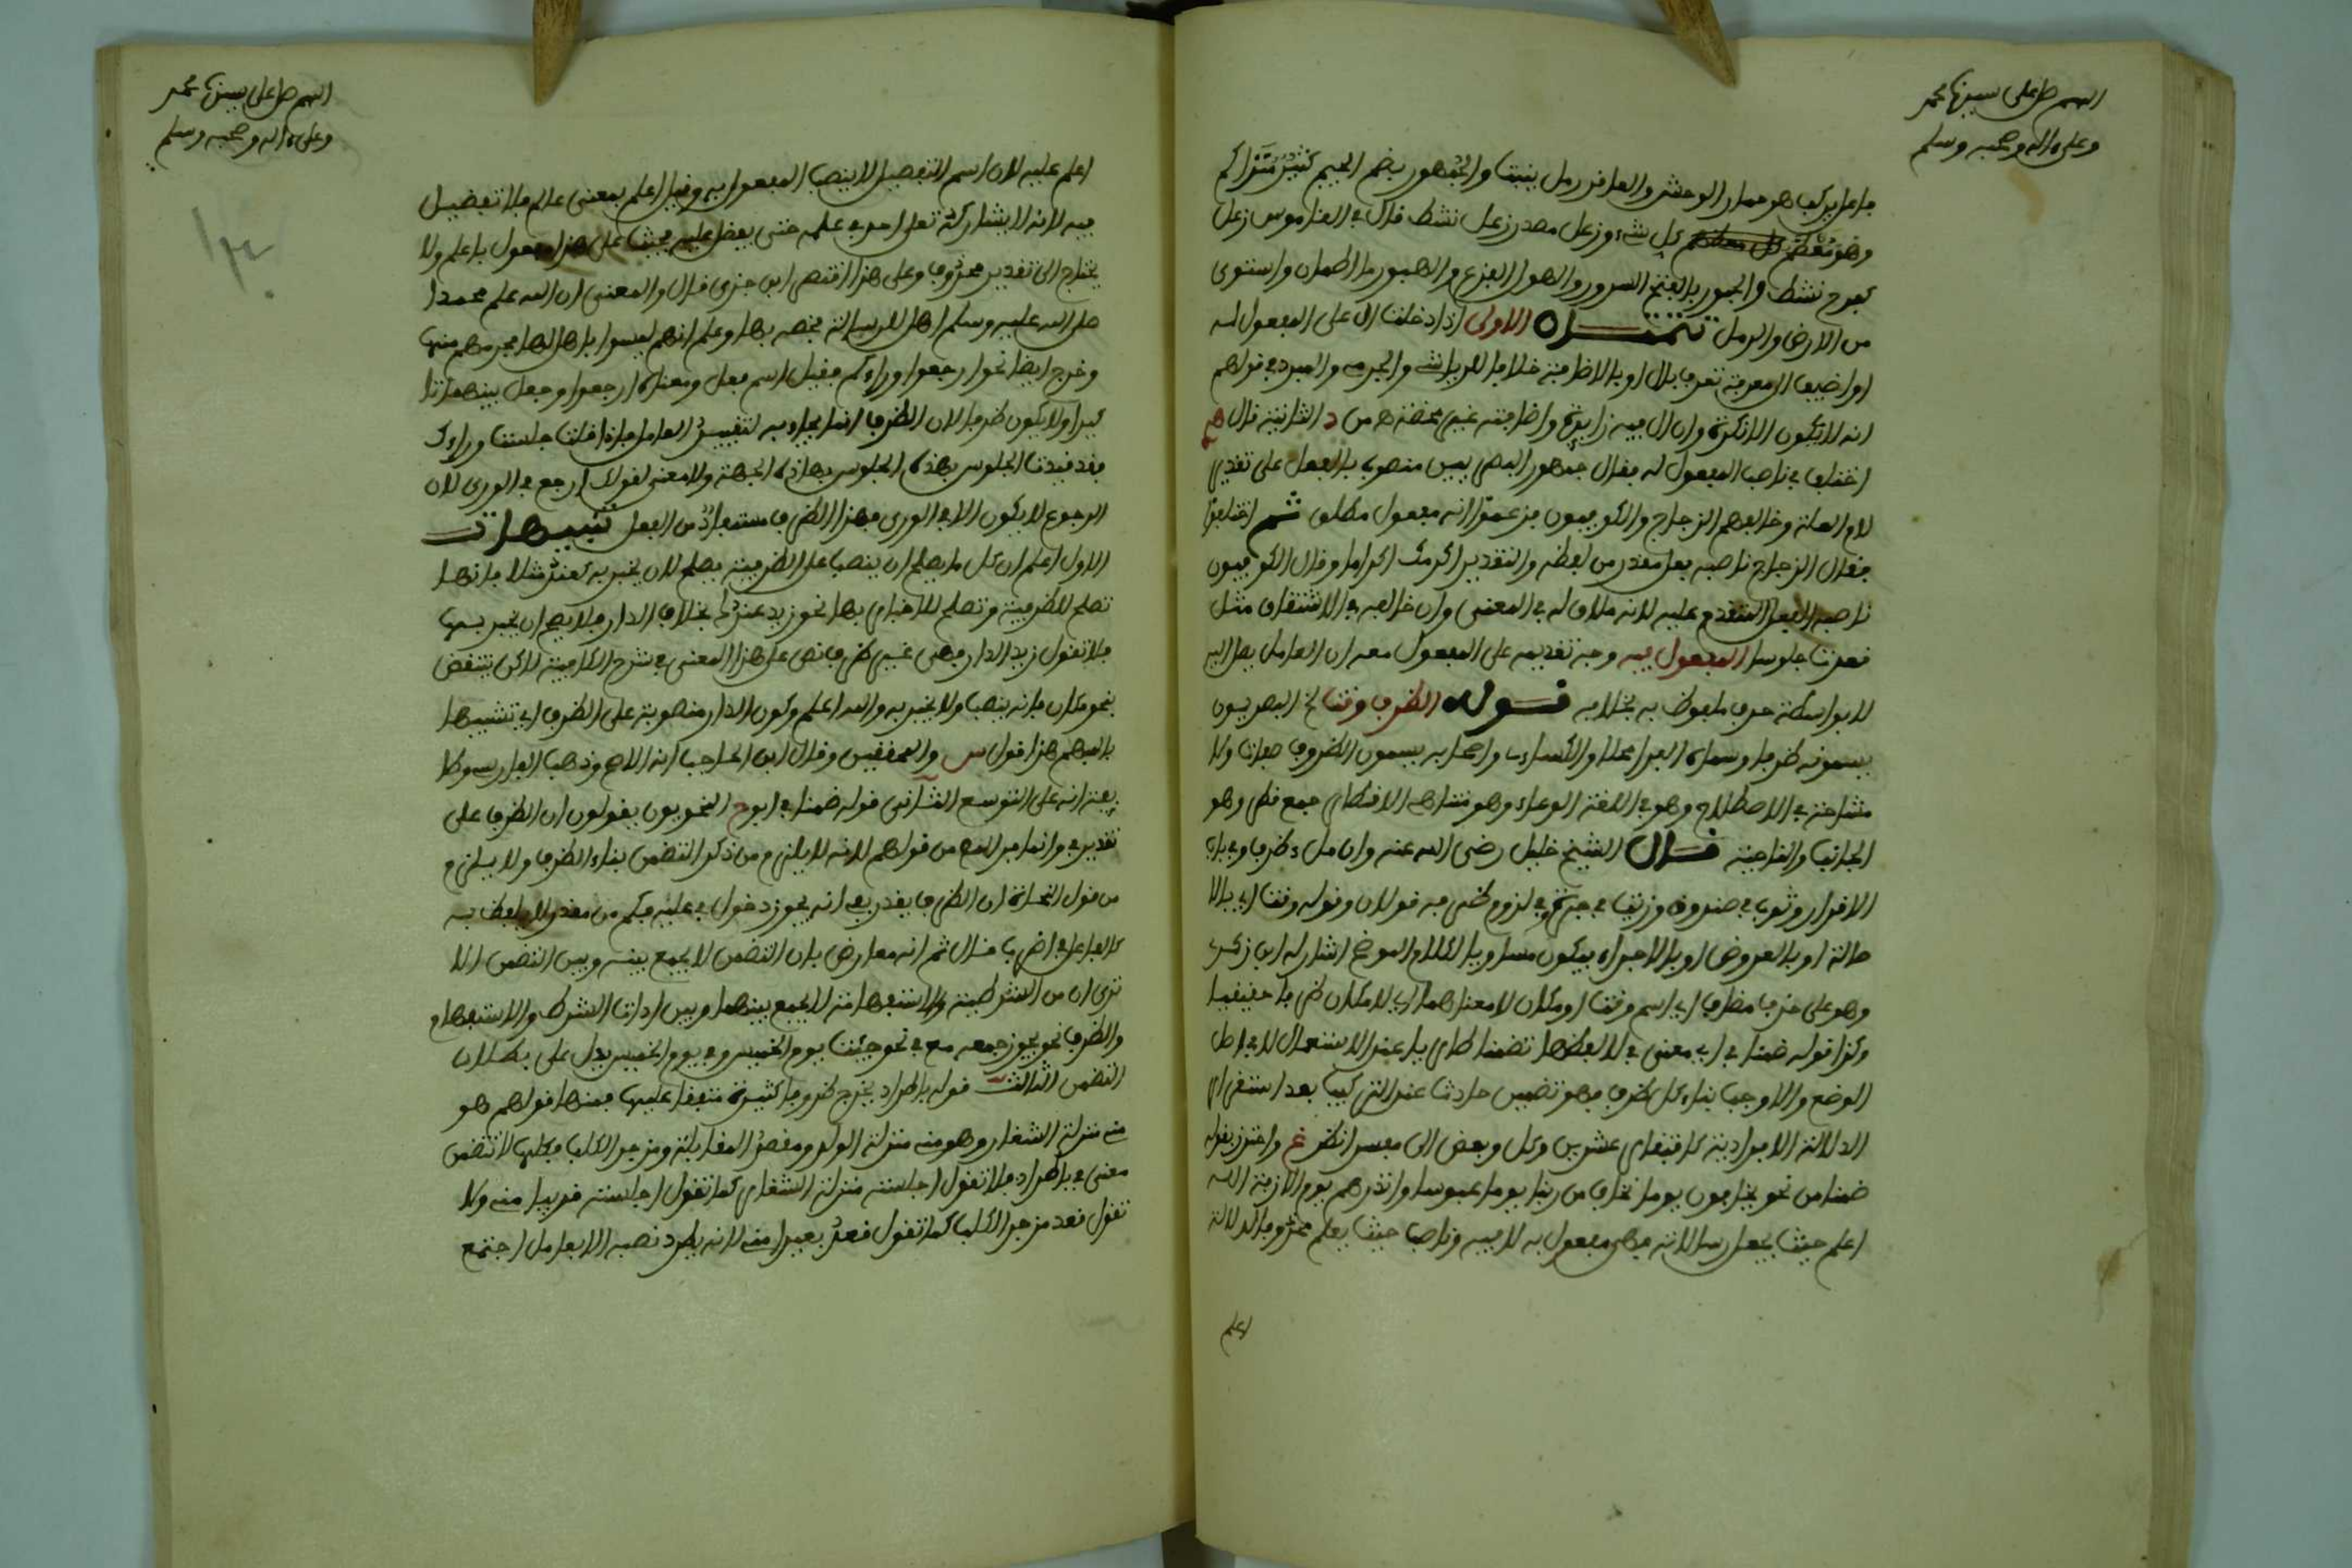 اللهم صل على سيدنا محمد
وعلى ءاله وصحبه وسلم
فاعل يركب هو حمار الوحش والعاقر رمل ينبت والجمهور بضم الجيم كثير متراكم
وهو معظم كل شيء وزعل مصدر زعل نشط قال في القاموس زعل
كفرح نشط والحبور بالفتح السرور والهول الفزع والهبور ما اطمان واستوى
من الارض والرمل تتمتان الاولى اذا دخلت ال على المفعول له
او اضيف الى معرفة تعرف بال او بالاضافة خلافا للرياشي والجرمي والمبرد في قولهم
انه لا يكون الا نكرة وان ال فيه زايدة واضافته غير محضة من الثانية قال
اختلف في ناصب المفعول له فقال جمهور البصريين منصوب بالفعل على تقدير
لام العلة وخالفهم الزجاج والكوفيون فزعموا انه مفعول مطلق ثم اختلفوا
فقال الزجاج ناصبه فعل مقدر من لفظه والتقدير اكرمك اكراما وقال الكوفيون
ناصبه الفعل المتقدم عليه لانه ملاق له في المعنى وان خالفه في الاشتقاق مثل
قعدت جلوسا المفعول فيه وجه تقديمه على المفعول معه ان العامل يصل اليه
لا بواسطة حرف ملفوظ به بخلافه قوله الظرف وقت الخ البصريون
يسمونه ظرفا وسماه الفراء محلا والكساءي واصحابه يسمون الظروف صفات ولا
مشاحة في الاصطلاح وهو في اللغة الوعاء وهو متناهي الاقطار جمع قطر وهو
الجانب والناحية قال الشيخ خليل رضي الله عنه وان ملء ظرف وفي باب
الاقرار وثوب في صندوق وزيت في جرة وفي لزوم ظرفه قولان وقوله وقت اي بالا
صالة او بالعروض او بالاجراء فيكون مساويا لكلام الموضح اشار له ابن زكري
وهو على حذف مضاف اي اسم وقت او مكان لا معناهما اي لا مكان ظرفا حقيقيا
وكذا قوله ضمنا في اي معنى في لا لفظها تضمنا طاريا عند الاستعمال لا في اصل
الوضع والا وجب بناء كل ظرف فهو تضمين حادث عند التركيب بعد استقرار
الدلالة الافرادية كاقتفاء عشرين وكل وبعض الى مفسر انظر غ واحترز بقوله
ضمنا من نحو يخافون يوما نخاف من ربنا يوما عبوسا وانذرهم يوم الازفة الله
اعلم حيث يجعل رسالاته فهي مفعول به لا فيه وناصب حيث يعلم محذوفا لدلالة
اعلم
اللهم صل على سيدنا محمد
وعلى ءاله وصحبه وسلم
اعلم عليه لان اسم التفضيل لا ينصب المفعول به وقيل اعلم بمعنى عالم فلا تفضيل
فيه لانه لا يشاركه تعلى احد في علمه حتى يفضل عليه فحيث على هذا مفعول باعلم ولا
يحتاج الى تقدير محذوف وعلى هذا اقتصر ابن جزي قال والمعنى ان الله علم محمدا
صلى الله عليه وسلم اهلا للرسالة فخصه بها وعلم انهم ليسوا باهل لها فحرمهم منها
وخرج ايضا نحو ارجعوا وراءكم فقيل اسم فعل ومعناه ارجعوا وجعل بينهما تا
كيدا ولا يكون ظرفا لان الظرف انما يجاء به لتقييد العامل فاذا قلت جلست وراءك
فقد قيدت الجلوس بهذه الجلوس بهذه الجهة ولا معنى لقولك ارجع في الورى لان
الرجوع لا يكون الا في الورى فهذا الظرف مستفاد من الفعل تنبيهات
الاول اعلم ان كل ما يصلح ان ينصب على الظرفية يصلح لان يخبر به كعند مثلا فانها
تصلح للظرفية وتصلح للاخبار بها نحو زيد عندك بخلاف الدار فلا يصح ان يخبر بها
فلا تقول زيد الدار فهي غير ظرف نص على هذا المعنى في شرح الكافية لاكن ينتقض
بنحو مكان فانه ينصب ولا يخبر به والله اعلم وكون الدار منصوبة على الظرف اي تشبيها
بالمبهم هذا قول س والمحققين وقال ابن الحاجب انه الاصح وذهب الفارسي وطا
يفة انه على التوسع الثاني قوله ضمنا في ابوح النحويون يقولون ان الظرف على
تقدير في وانما فر المص من قولهم لانه لا يلزم من ذكر التضمن بناء الظرف ولا يلزم
من قول النحاة ان الظرف يقدر بفي انه يجوز دخول في عليه فكم من مقدر لا يلفظ به
كالفاعل في اضرب قال ثم انه معارض بان التضمن لا يجمع بينه وبين التضمن الا
ترى ان من الشرطية والاستفهامية لا يجمع بينهما وبين ادات الشرط والاستفهام
والظرف نحو يجوز جمعه مع في نحو جئت يوم الخميس وفي يوم الخميس يدل على بطلان
التضمن الثالث قوله باطراد يخرج ظروفا كثيرة متفقا عليها فمنها قولهم هو
مني منزلة الشغاف وهو منه منزلة الولد ومقعد القابلة ومزجر الكلب فكلها لا تتضمن
معنى في باطراد فلا تقول اجلسته منزلة الشغاف كما تقول اجلسته قريبا منه ولا
تقول قعد مزجر الكلب كما تقول قعد بعيدا منه لانه يطرد نصبه الا بعامل اجتمع